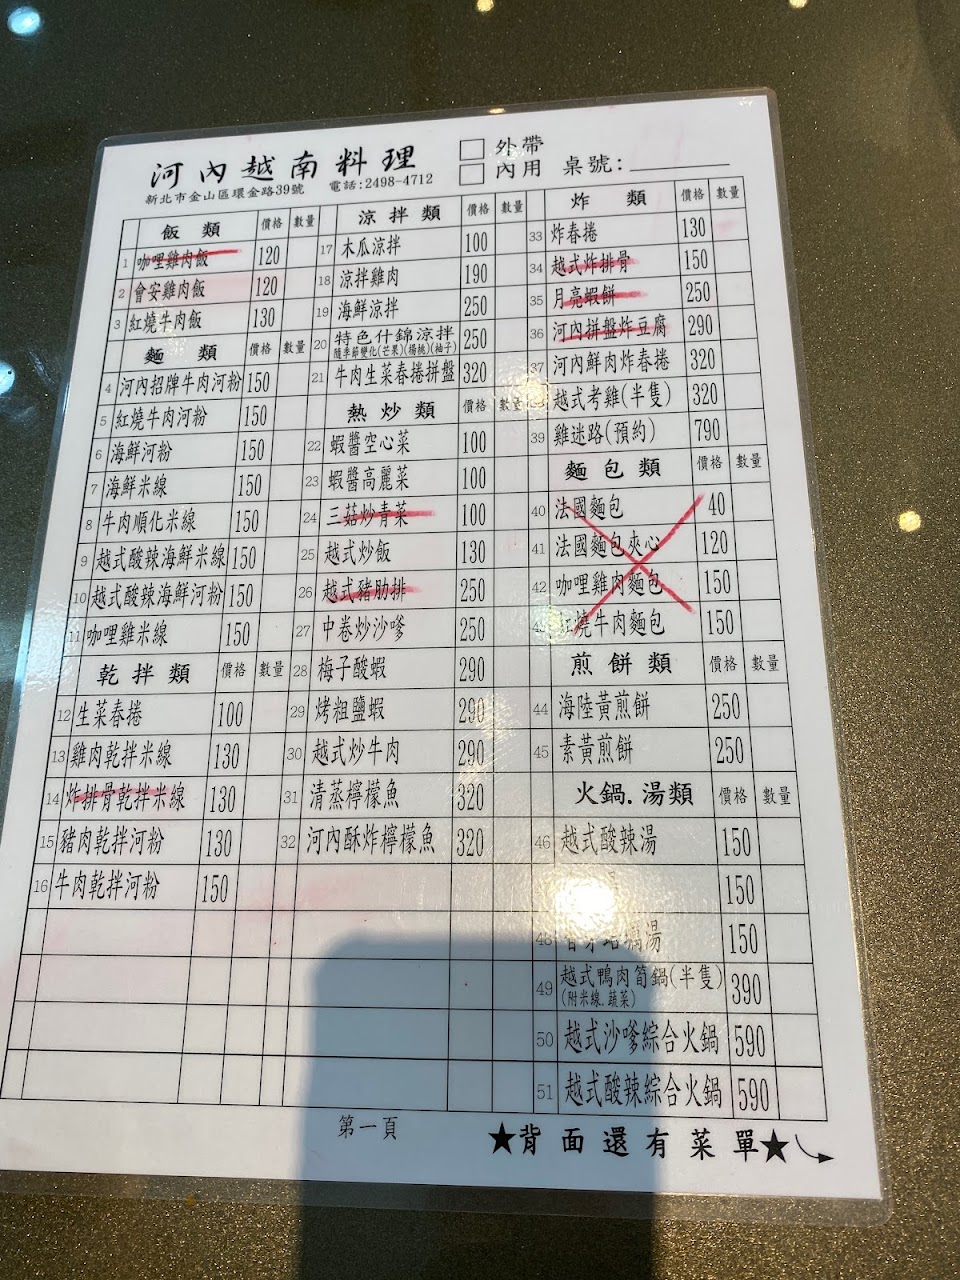 河內越南料理
新北市金山區環金路39號 電話:2498-4712
外帶
內用 桌號:
飯類 價格 數量
1 咖哩雞肉飯 120
2 會安雞肉飯 120
3 紅燒牛肉飯 130
麵類 價格 數量
4 河內招牌牛肉河粉 150
5 紅燒牛肉河粉 150
6 海鮮河粉 150
7 海鮮米線 150
8 牛肉順化米線 150
9 越式酸辣海鮮米線 150
10 越式酸辣海鮮河粉 150
11 咖哩雞米線 150
乾拌類 價格 數量
12 生菜春捲 100
13 雞肉乾拌米線 130
14 炸排骨乾拌米線 130
15 豬肉乾拌河粉 130
16 牛肉乾拌河粉 150
涼拌類 價格 數量
17 木瓜涼拌 100
18 涼拌雞肉 190
19 海鮮涼拌 250
20 特色什錦涼拌 250
隨季節變化(芒果)(楊桃)(柚子)
21 牛肉生菜春捲拼盤 320
熱炒類 價格 數量
22 蝦醬空心菜 100
23 蝦醬高麗菜 100
24 三菇炒青菜 100
25 越式炒飯 130
26 越式豬肋排 250
27 中卷炒沙嗲 250
28 梅子酸蝦 290
29 烤粗鹽蝦 290
30 越式炒牛肉 290
31 清蒸檸檬魚 320
32 河內酥炸檸檬魚 320
炸類 價格 數量
33 炸春捲 130
34 越式炸排骨 150
35 月亮蝦餅 250
36 河內拼盤炸豆腐 290
37 河內鮮肉炸春捲 320
越式考雞(半隻) 320
39 雞迷路(預約) 790
麵包類 價格 數量
40 法國麵包 40
41 法國麵包夾心 120
42 咖哩雞肉麵包 150
紅燒牛肉麵包 150
煎餅類 價格 數量
44 海陸黃煎餅 250
45 素黃煎餅 250
火鍋.湯類 價格 數量
46 越式酸辣湯 150
150
48 湯 150
49 越式鴨肉筍鍋(半隻) 390
(附米線.蔬菜)
50 越式沙嗲綜合火鍋 590
51 越式酸辣綜合火鍋 590
第一頁
★背面還有菜單★